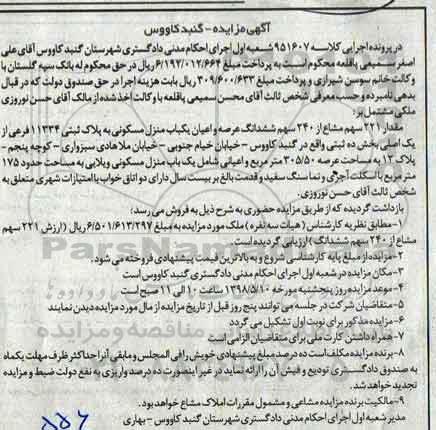 آگهی مزایده - گنبد کاووس
در پرونده اجرایی کلاسه ۹۵۱۶۰۷ شعبه اول اجرای احکام مدنی دادگستری شهرستان گنبد کاووس آقای علی
اصغر سمیعی یاقلعه محکوم است به پرداخت مبلغ ۶/۱۹۲/۰۱۲/۶۶۴ ریال در حق محکوم له بانک سپه گلستان با
وکالت خانم سوسن شیرازی و پرداخت مبلغ ۳۰۹/۶۰۰/۶۳۳ ریال بابت هزینه اجرا در حق صندوق دولت که در قبال
بدهی نامبرده و حسب معرفی شخص ثالث آقای محسن سمیعی یاقلعه با وکالت اخذ شده از مالک آقای حسن نوروزی
ملکی مشتمل بر :
مقدار ۲۲۱ سهم مشاع از ۲۴۰ سهم ششدانگ عرصه و اعیان یکباب منزل مسکونی به پلاک ثبتی ۱۱۳۳۴ فرعی از
یک اصلی بخش ده ثبتی واقع در گنبد کاووس - خیابان خیام جنوبی - خیابان ملاهادی سبزواری - کوچه پنجم -
پلاک ۱۳ به مساحت عرصه ۳۰۵/۵۰ متر مربع و اعیانی شامل یک باب منزل مسکونی ویلایی به مساحت حدود ۱۷۵
متر مربع با اسکلت آجری و نما سنگ سفید و قدمت بالغ بر بیست سال دارای دو اتاق خواب با امتیازات شهری متعلق به
شخص ثالث آقای حسن نوروزی.
بازداشت گردیده که از طریق مزایده حضوری به شرح ذیل به فروش می رسد؛
۱-مطابق نظریه کارشناس (هیات سه نفره) ملک مورد مزایده به مبلغ ۶/۵۰۱/۶۱۳/۲۹۷ ریال (ارزش ۲۲۱ سهم
مشاع از ۲۴۰ سهم ششدانگ) ارزیابی گردیده است.
۲-مزایده از مبلغ پایه کارشناسی شروع و به بالاترین قیمت پیشنهادی فروخته می شود.
۳-مکان مزایده در شعبه اول اجرای احکام مدنی دادگستری گنبد کاووس است
۴-موعد مزایده روز پنجشنبه مورخه ۱۳۹۸/۵/۱۰ ساعت ۱۰ الی ۱۱ صبح است
۵-متقاضیان شرکت در جلسه می توانند پنج روز قبل از تاریخ مزایده از مال مورد مزایده دیدن نمایند
۶-مزایده مذکور برای نوبت اول تشکیل می گردد
۷-همراه داشتن کارت ملی برای متقاضیان الزامی است
۸-برنده مزایده مکلف است ده درصد مبلغ پیشنهادی خویش را فی المجلس و مابقی آنرا حداکثر ظرف مهلت یکماه
به صندوق دادگستری تودیع و فیش آن را ارائه نماید در غیر اینصورت ده درصد واریزی به نفع دولت ضبط و مزایده
تجدید خواهد شد.
۹-مالکیت برنده مزایده مشاعی و مشمول مقررات املاک مشاع خواهد بود.
مدیر شعبه اول اجرای احکام مدنی دادگستری شهرستان گنبد کاووس - بهاری